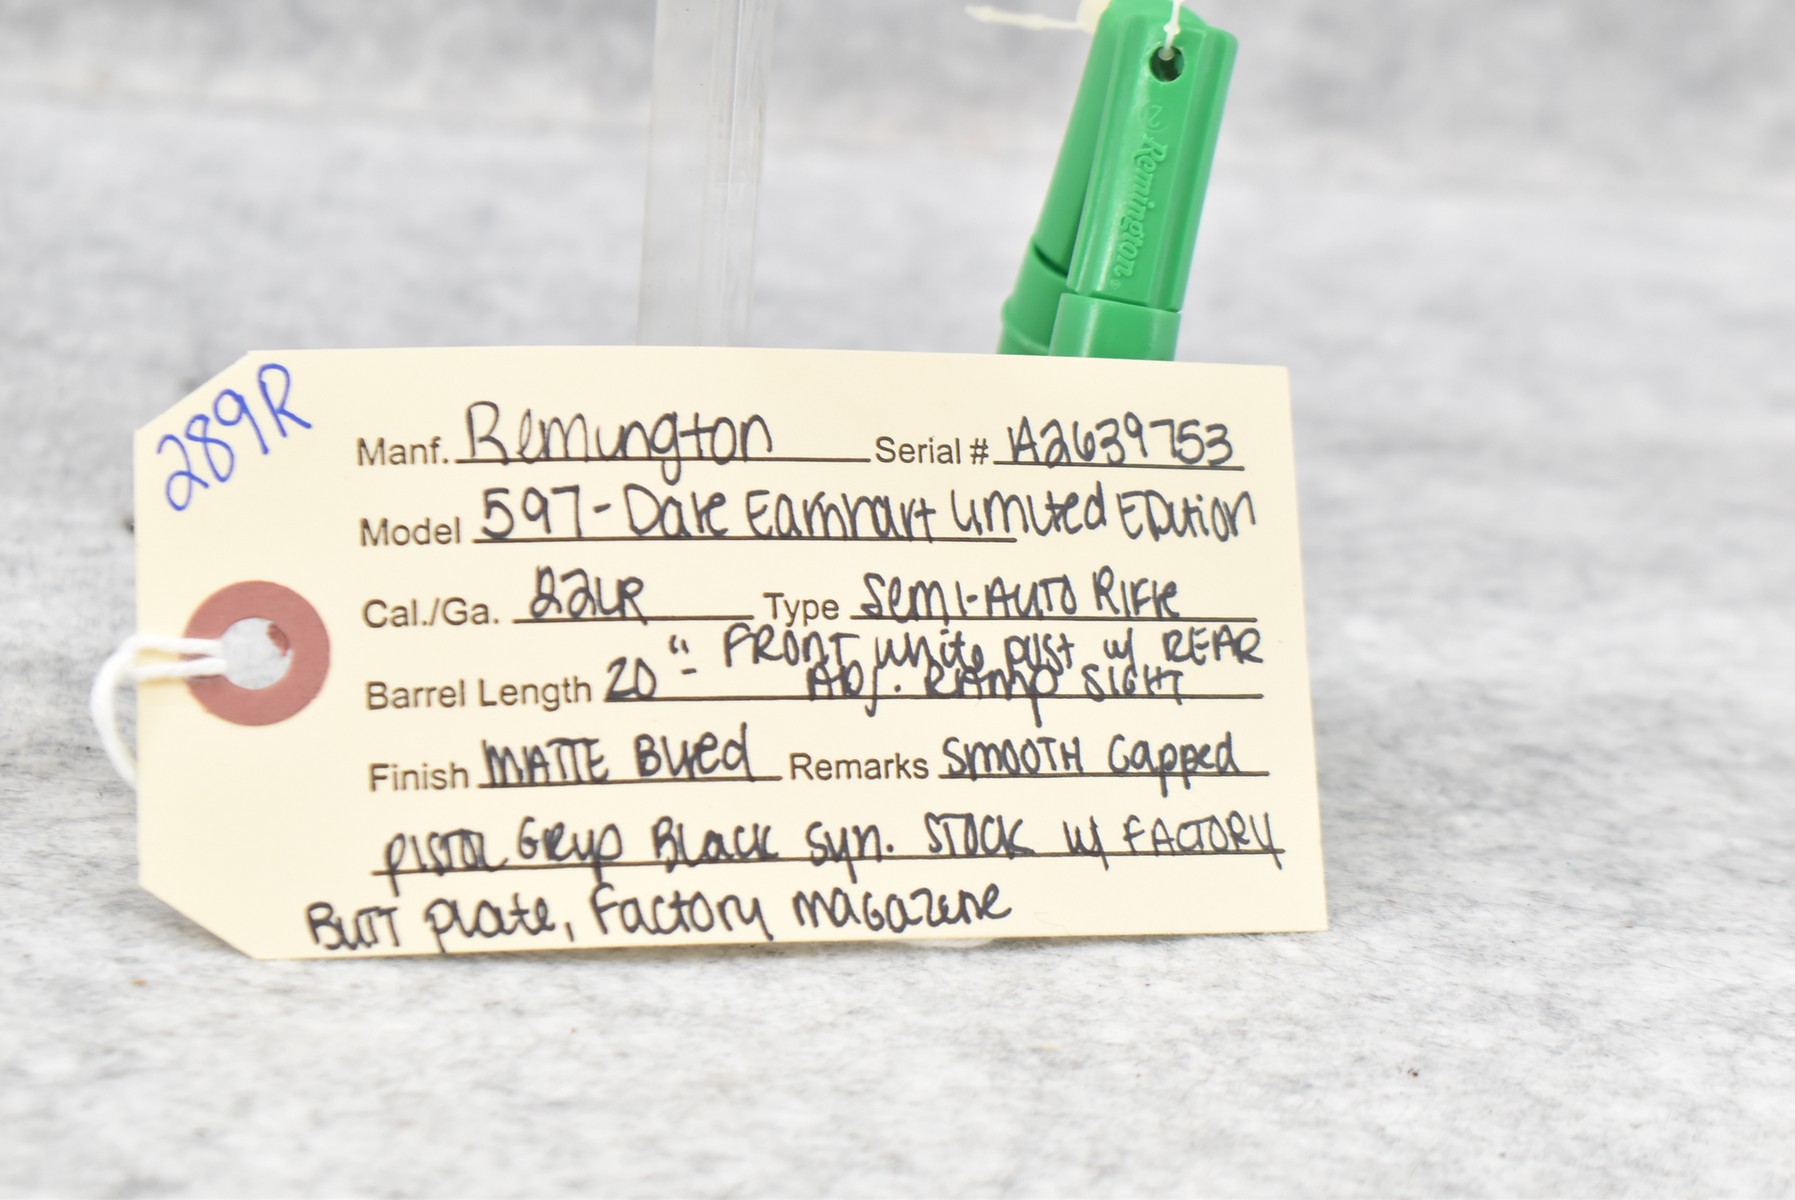 Remington®
289R
Manf. Remington Serial # A2639753
Model 597-Dale Earnhart Limited Edition
Cal./Ga. 22LR Type Semi-Auto Rifle
FRONT white post w/ REAR
Barrel Length 20"- ADJ. RAMP SIGHT
Finish MATTE Blued Remarks SMOOTH Capped
PISTOL GRIP Black Syn. STOCK w/ FACTORY
BUTT plate, Factory magazine